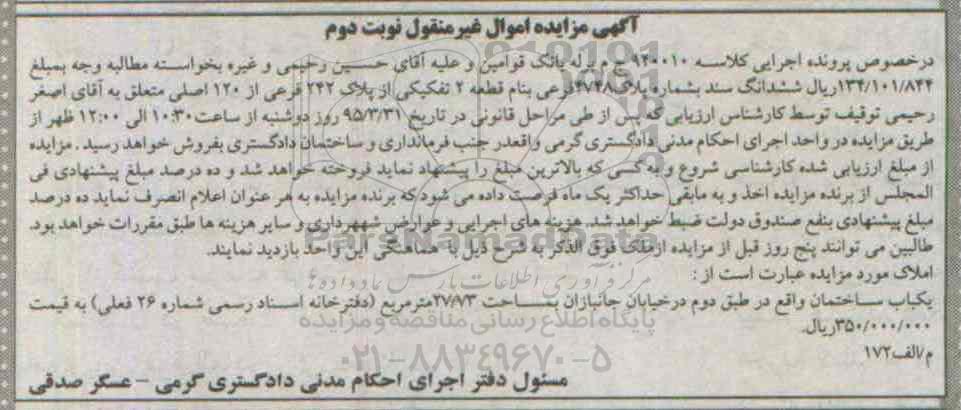 آگهی مزایده اموال غیرمنقول نوبت دوم
درخصوص پرونده اجرایی کلاسه ۹۴۰۰۱۰ ح م برله بانک قوامین و علیه آقای حسین رحیمی و غیره بخواسته مطالبه وجه بمبلغ
۱۳۴/۱۰۱/۸۴۴ریال ششدانگ سند بشماره پلاک ۴۷۴۸فرعی بنام قطعه ۲ تفکیکی از پلاک ۲۴۲ فرعی از ۱۲۰ اصلی متعلق به آقای اصغر
رحیمی توقیف توسط کارشناس ارزیابی که پس از طی مراحل قانونی در تاریخ ۹۵/۳/۳۱ روز دوشنبه از ساعت ۱۰:۳۰ الی ۱۲:۰۰ ظهر از
طریق مزایده در واحد اجرای احکام مدنی دادگستری گرمی واقعدر جنب فرمانداری و ساختمان دادگستری بفروش خواهد رسید . مزایده
از مبلغ ارزیابی شده کارشناسی شروع و به کسی که بالاترین مبلغ را پیشنهاد نماید فروخته خواهد شد و ده درصد مبلغ پیشنهادی فی
المجلس از برنده مزایده اخذ و به مابقی حداکثر یک ماه فرصت داده می شود که برنده مزایده به هر عنوان اعلام انصرف نماید ده درصد
مبلغ پیشنهادی بنفع صندوق دولت ضبط خواهد شد. هزینه های اجرایی و عوارض شهرداری و سایر هزینه ها طبق مقررات خواهد بود.
طالبین می توانند پنج روز قبل از مزایده ازملک فوق الذکر به شرح ذیل با هماهنگی این واحد بازدید نمایند.
املاک مورد مزایده عبارت است از :
یکباب ساختمان واقع در طبق دوم درخیابان جانبازان بمساحت ۲۷/۷۳مترمربع (دفترخانه اسناد رسمی شماره ۲۶ فعلی) به قیمت
۳۵۰/۰۰۰/۰۰۰ریال.
م/الف۱۷۲
مسئول دفتر اجرای احکام مدنی دادگستری گرمی – عسگر صدقی
ParsNamadData
مرکز فرآوری اطلاعات پارس نماد داده ها
پایگاه اطلاع رسانی مناقصه و مزایده
۰۲۱-۸۸۳۴۹۶۷۰-۵